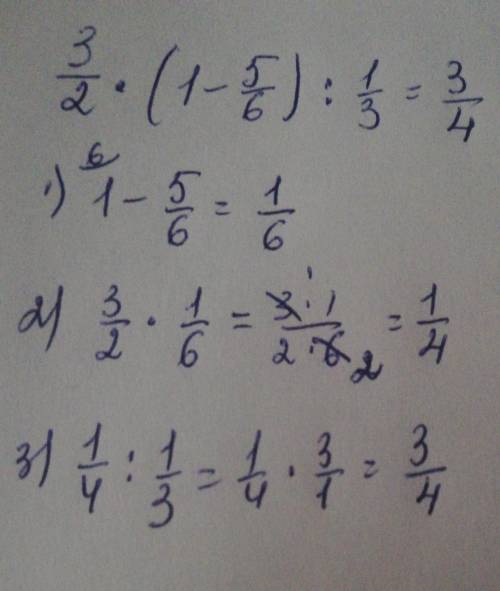 3/2 · (1 - 5/6) : 1/3 = 3/4
1) 1 - 5/6 = 1/6
2) 3/2 · 1/6 = 3·1/2·6 = 1/4
3) 1/4 : 1/3 = 1/4 · 3/1 = 3/4